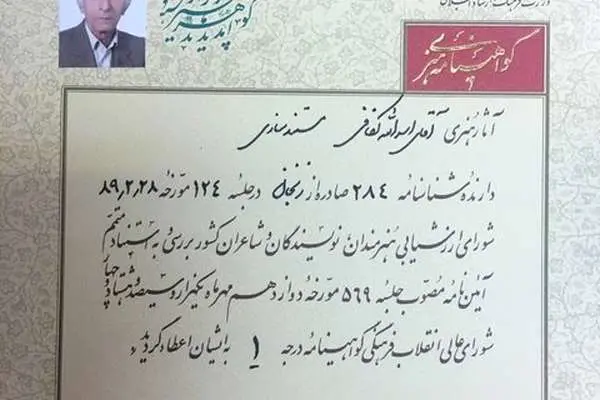 وزارت فرهنگ و ارشاد اسلامی
گواهینامه هنری
آثار هنری آقای اسدالله کفافی مستندسازی
دارنده شناسنامه ۲۸۴ صادره از زنجان در جلسه ۱۲۴ مورخه ۸۹٫۲٫۲۸
شورای ارزشیابی هنرمندان نویسندگان و شاعران کشور بررسی و به استناد متمم
آئین نامه مصوب جلسه ۵۶۹ مورخه دوازدهم مهرماه یکهزار و سیصد و هشتاد و چهار
شورای عالی انقلاب فرهنگی گواهینامه درجه ۱ به ایشان اعطاء گردید،